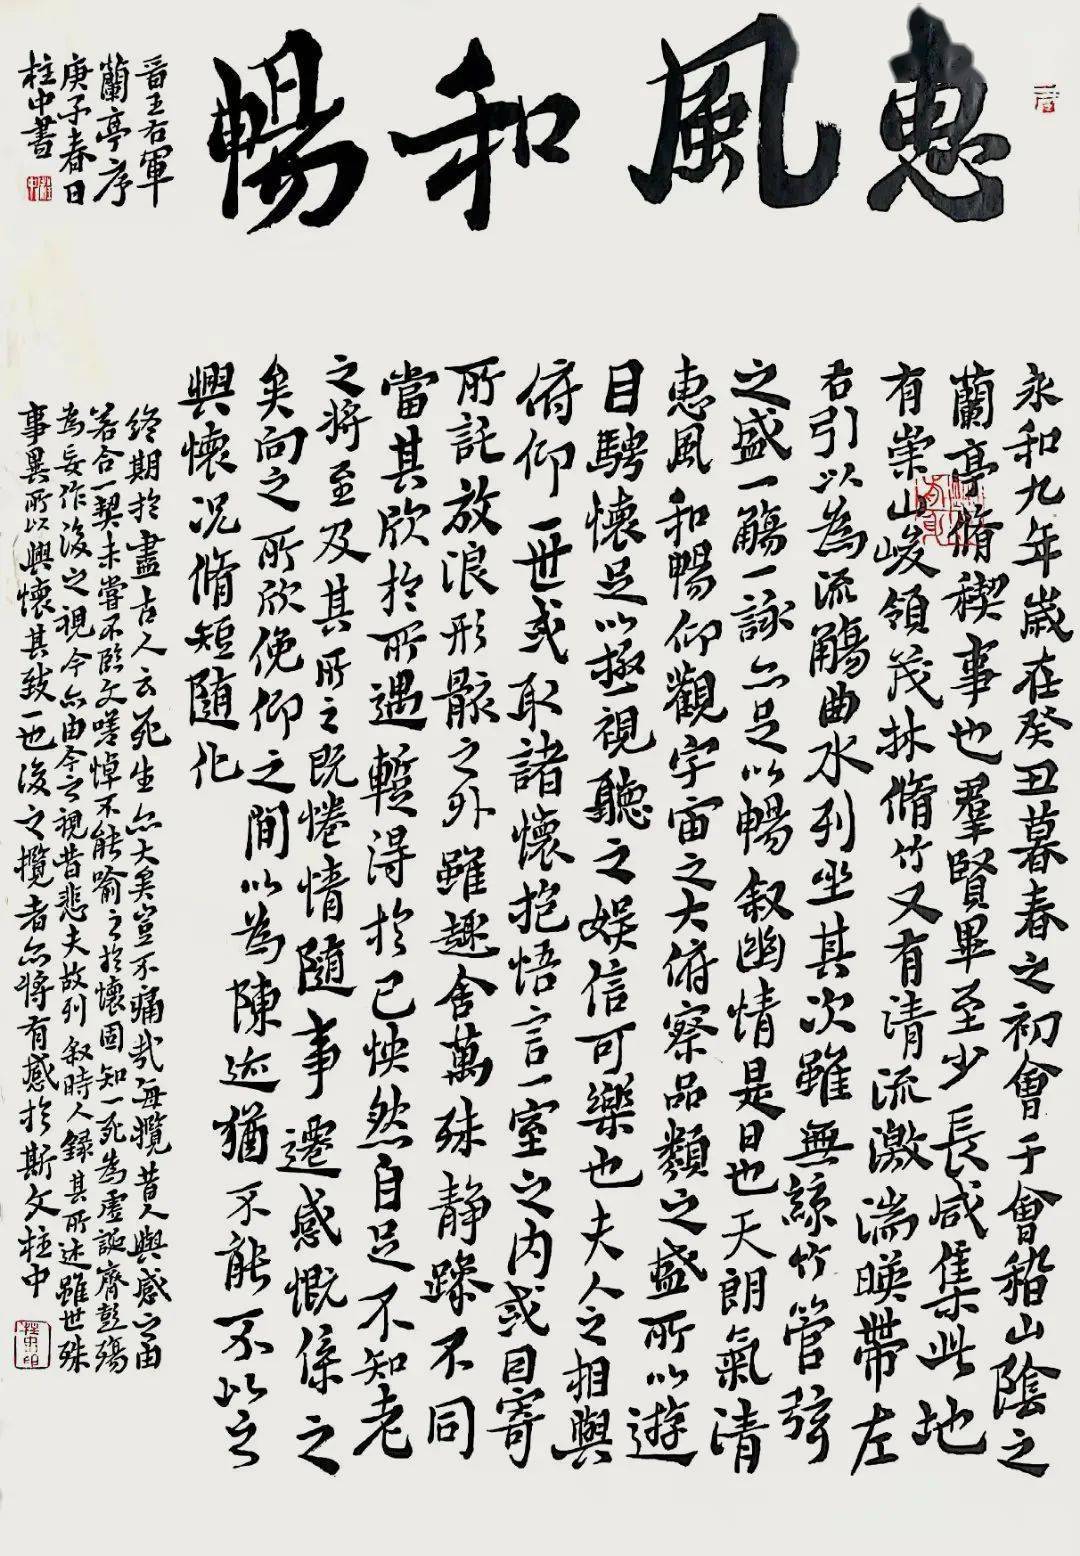 惠風和暢
晉王右軍
蘭亭序
庚子春日
柱中書
永和九年歲在癸丑暮春之初會于會稽山陰之
蘭亭脩稧事也羣賢畢至少長咸集此地
有崇山峻領茂林脩竹又有清流激湍暎帶左
右引以為流觴曲水列坐其次雖無絲竹管弦
之盛一觴一詠亦足以暢叙幽情是日也天朗氣清
惠風和暢仰觀宇宙之大俯察品類之盛所以遊
目騁懷足以極視聽之娛信可樂也夫人之相與
俯仰一世或取諸懷抱悟言一室之內或因寄
所託放浪形骸之外雖趣舍萬殊静躁不同
當其欣於所遇暫得於己怏然自足不知老
之將至及其所之既惓情隨事遷感慨係之
矣向之所欣俛仰之間以為陳迹猶不能不以之
興懷況脩短隨化
終期於盡古人云死生亦大矣豈不痛哉每攬昔人興感之由
若合一契未嘗不臨文嗟悼不能喻之於懷固知一死為虛誕齊彭殤
為妄作後之視今亦由今之視昔悲夫故列叙時人録其所述雖世殊
事異所以興懷其致一也後之攬者亦將有感於斯文柱中
柱中印